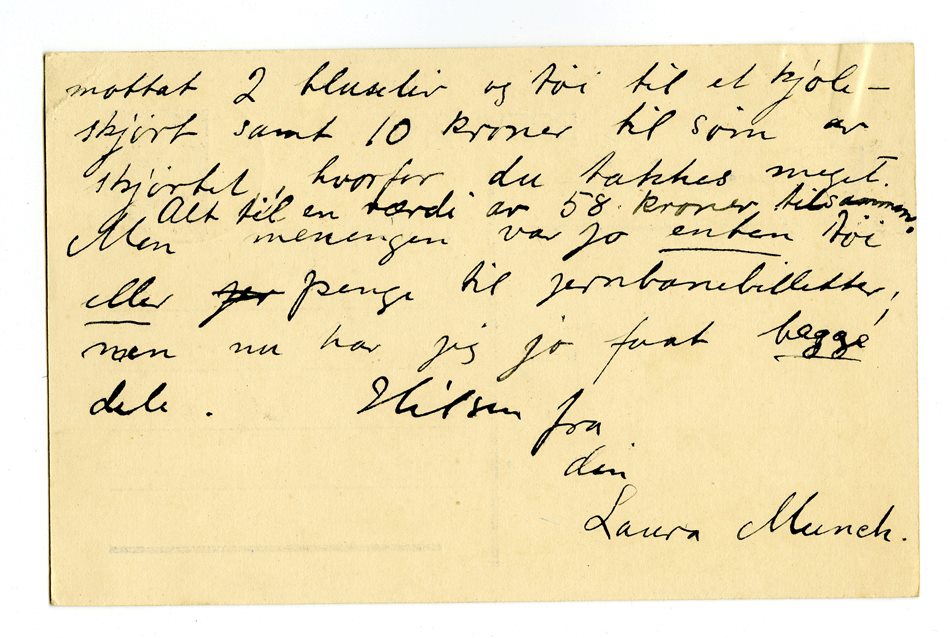 mottat 2 bluseliv og tøi til et kjole-
skjørt samt 10 kroner til søm av
skjørtet, hvorfor du takkes meget.
Alt til en værdi av 58 kroner tilsammen.
Men meningen var jo enten tøi
eller penge til jernbanebilletter,
men nu har jeg jo faat begge
dele. Hilsen fra
din
Laura Munch.